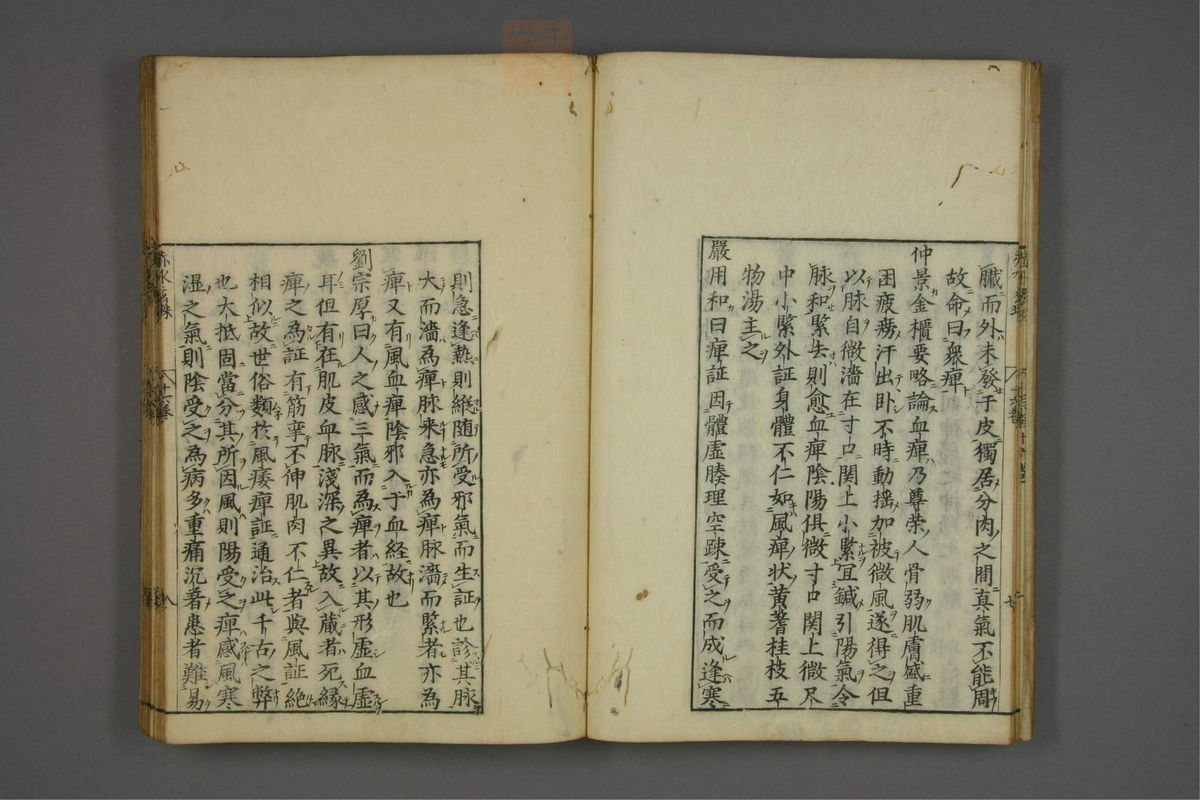 臓而外未發于皮獨居分肉之間真氣不能周
故命曰衆痺
仲景金櫃要略論血痺乃尊荣人骨弱肌膚盛重
困疲労汗出卧不時動揺加被微風遂得之但
以脉自微濇在寸口関上小緊冝鍼引陽氣令
脉和緊去則愈血痺陰陽俱微寸口関上微尺
中小緊外証身體不仁如風痺状黄蓍桂枝五
物湯主之
嚴用和曰痺証因體虚腠理空踈受之而成逢寒
則急逢熱則縱随所受邪氣而生証也診其脉
大而濇為痺脉来急亦為痺脉濇而緊者亦為
痺又有風血痺陰邪入于血経故也
劉宗厚曰人之感三氣而為痺者以其形虚血虚
耳但有在肌皮血脉淺深之異故入蔵者死縁
痺之為証有筋挛不伸肌肉不仁者與風証絶
相似故世俗類扵風痿痺証通治此千古之弊
也大抵固當分其所因風則陽受之痺感風寒
湿之氣則陰受之為病多重痛沉著患者難易